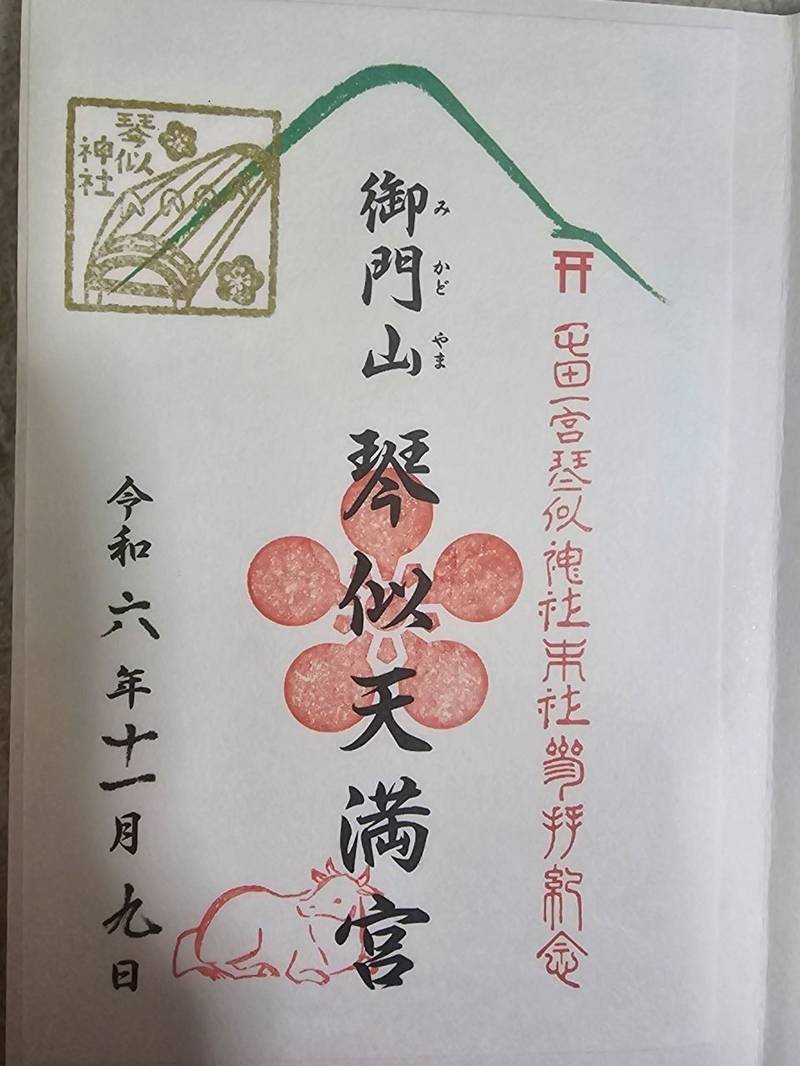 屯田一宮琴似神社末社参拝紀念
御門山 琴似天満宮
み かど やま
令和六年十一月九日
琴似
神社